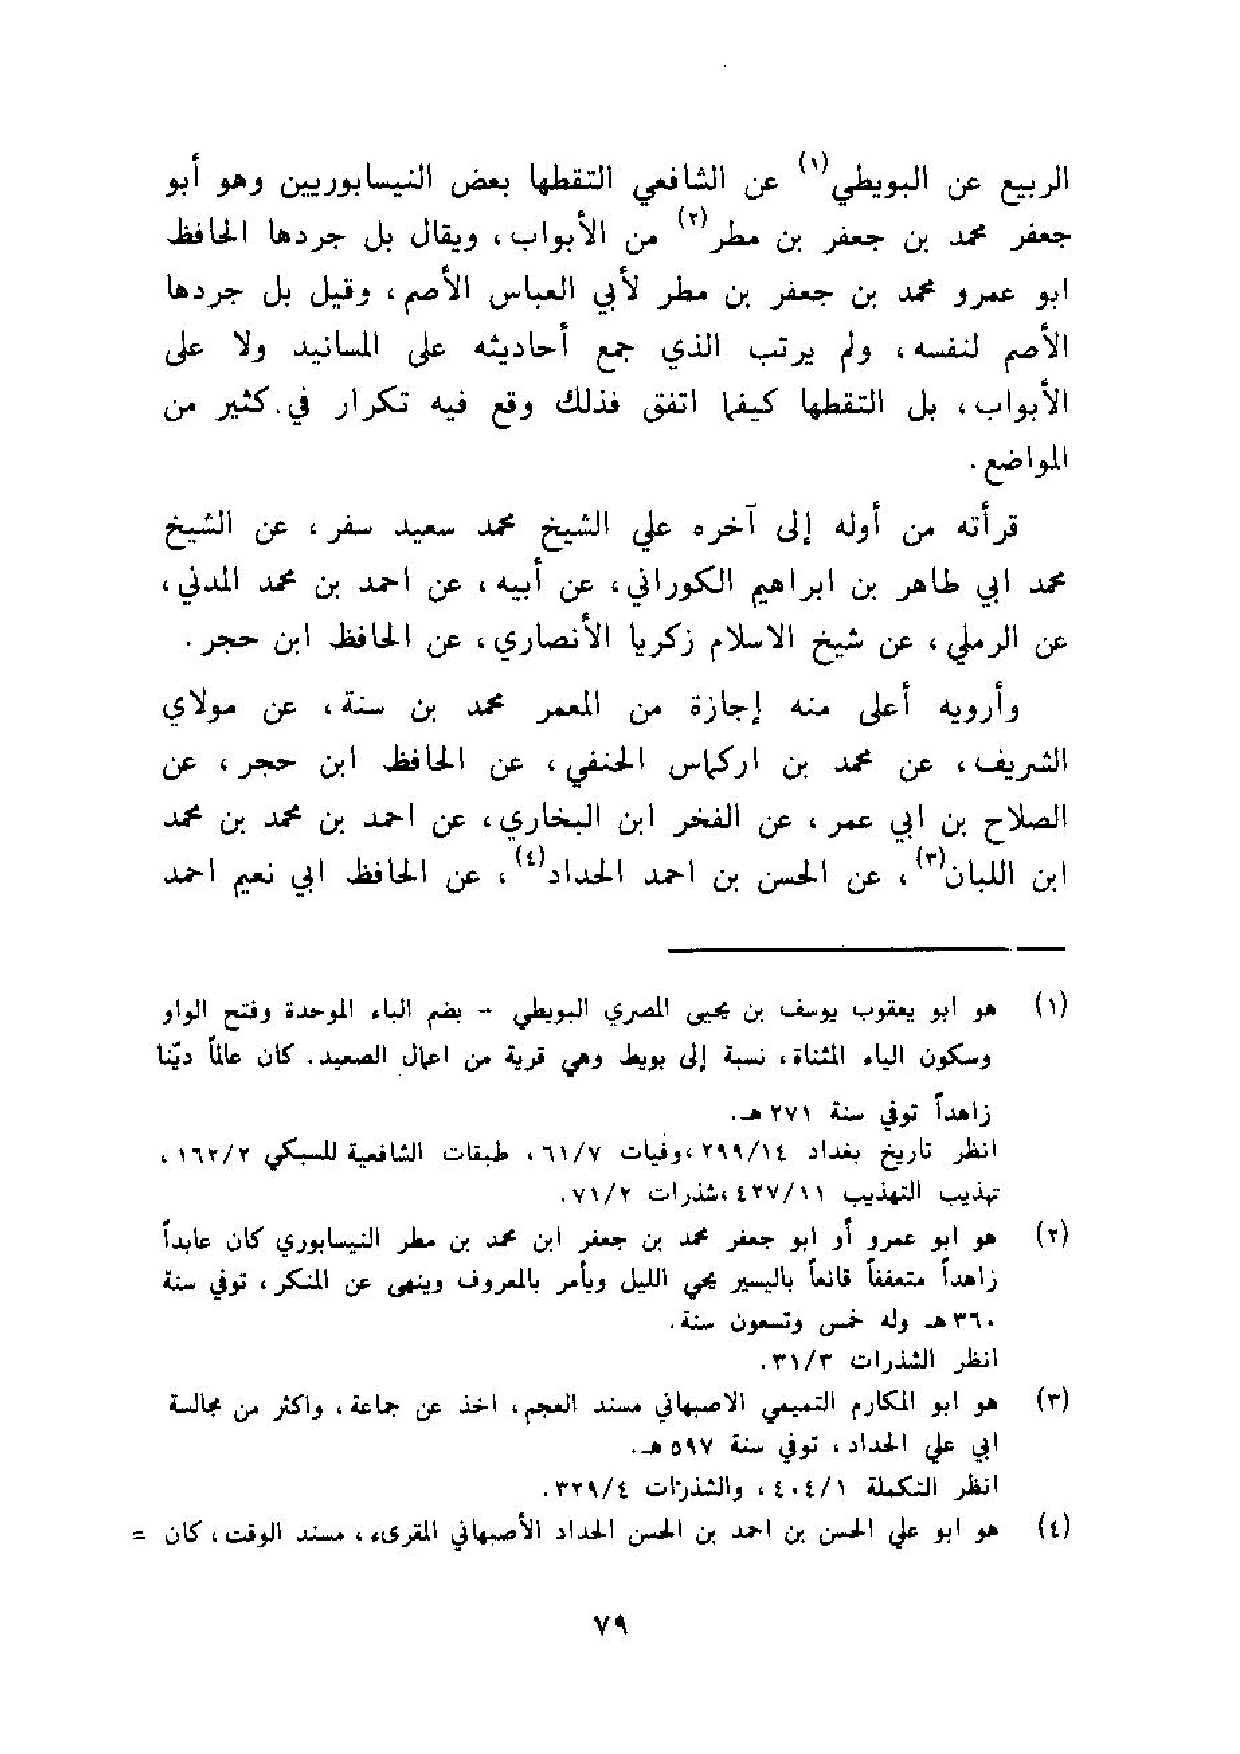 الربيع عن البويطي(١) عن الشافعي التقطها بعض النيسابوريين وهو أبو
جعفر محمد بن جعفر بن مطر(٢) من الأبواب، ويقال بل جردها الحافظ
ابو عمرو محمد بن جعفر بن مطر لأبي العباس الأصم، وقيل بل جردها
الأصم لنفسه، ولم يرتب الذي جمع أحاديثه على المسانيد ولا على
الأبواب، بل التقطها كيفما اتفق فذلك وقع فيه تكرار في كثير من
المواضع.
قرأته من أوله إلى آخره علي الشيخ محمد سعيد سفر، عن الشيخ
محمد ابي طاهر بن ابراهيم الكوراني، عن أبيه، عن احمد بن محمد المدني،
عن الرملي، عن شيخ الاسلام زكريا الأنصاري، عن الحافظ ابن حجر.
وأرويه أعلى منه إجازة من المعمر محمد بن سنة، عن مولاي
الشريف، عن محمد بن اركماس الحنفي، عن الحافظ ابن حجر، عن
الصلاح بن ابي عمر، عن الفخر ابن البخاري، عن احمد بن محمد بن محمد
ابن اللبان(٣)، عن الحسن بن احمد الحداد(٤)، عن الحافظ ابي نعيم احمد
(١) هو ابو يعقوب يوسف بن يحيى المصري البويطي - بضم الباء الموحدة وفتح الواو
وسكون الياء المثناة، نسبة إلى بويط وهي قرية من اعمال الصعيد. كان عالماً ديّنا
زاهداً توفي سنة ٢٧١ هـ.
انظر تاريخ بغداد ٢٩٩/١٤، وفيات ٦١/٧، طبقات الشافعية للسبكي ١٦٢/٢،
تهذيب التهذيب ٤٢٧/١١، شذرات ٧١/٢.
(٢) هو ابو عمرو أو ابو جعفر محمد بن جعفر ابن محمد بن مطر النيسابوري كان عابداً
زاهداً متعففاً قانعاً باليسير يحي الليل ويأمر بالمعروف وينهى عن المنكر، توفي سنة
٣٦٠ هـ وله خمس وتسعون سنة.
انظر الشذرات ٣١/٣.
(٣) هو ابو المكارم التميمي الاصبهاني مسند العجم، اخذ عن جماعة، واكثر من مجالسة
ابي علي الحداد، توفي سنة ٥٩٧ هـ.
انظر التكملة ٤٠٤/١، والشذرات ٣٢٩/٤.
(٤) هو ابو علي الحسن بن احمد بن الحسن الحداد الأصبهاني المقرىء، مسند الوقت، كان =
٧٩